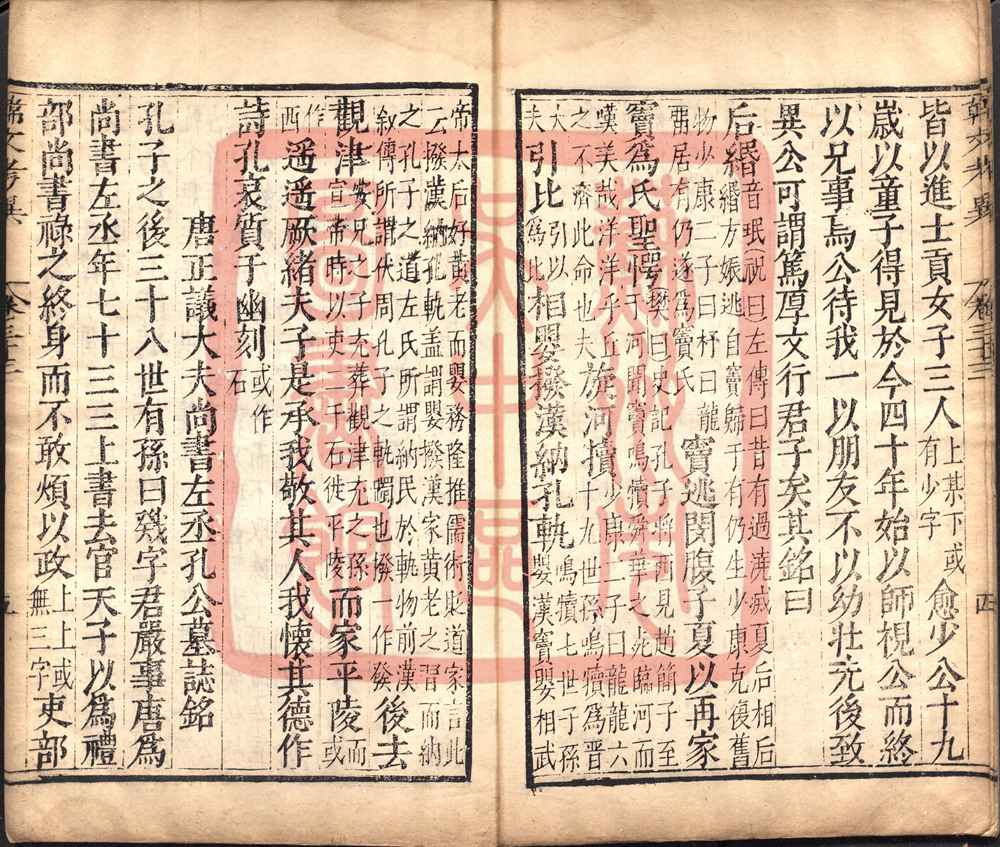 皆以進士貢女子三人上某下或有少字愈少公十九
歲以童子得見於今四十年始以師視公而終
以兄事焉公待我一以朋友不以幼壯先後致
異公可謂篤厚文行君子矣其銘曰
后緡音珉祝曰左傳曰昔有過澆滅夏后相后緡方娠逃自竇歸于有仍生少康克復舊物少康二子曰杼曰龍
留居有仍遂為竇氏竇逃閔腹子夏以再家
竇為氏聖愕樊曰史記孔子將西見趙簡子至于河聞竇鳴犢舜華之死臨河而
嘆美哉洋洋乎丘之不濟此命也夫旋河犢少康二子曰龍龍六十九世孫鳴犢為晋
大夫引比引以為比相嬰撥漢納孔軌鳴犢七世子孫嬰漢竇嬰相武
帝太后好黄老而嬰務隆推儒術貶道家言此云撥漢納孔軌盖謂嬰撥漢家黄老之習而納
之孔子之道左氏所謂納民於軌物前漢叙傳所謂伏周孔子之軌躅也撥一作發後去
觀津嬰兄之子充葬觀津充之孫宣帝時以吏二千石徙平陵而家平陵而或作
西遥遥厥緒夫子是承我敬其人我懷其德作
詩孔哀質于幽刻或作石
唐正議大夫尚書左丞孔公墓誌銘
孔子之後三十八世有孫曰戣字君嚴事唐為
尚書左丞年七十三三上書去官天子以為禮
部尚書祿之終身而不敢煩以政上上或無三字吏部